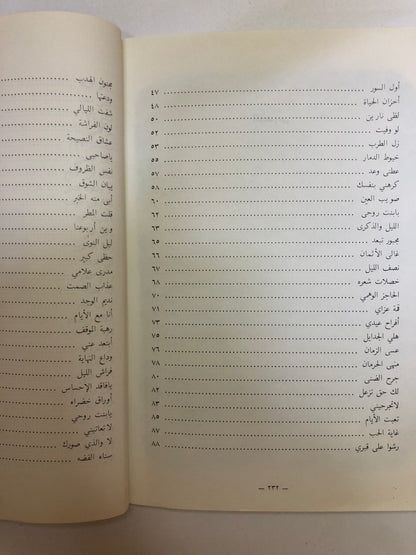 أول السور ٤٧
أحزان الحياة ٤٨
لظى نارين ٥٠
لو وفيت ٥٢
زل الطرب ٥٣
خيوط الدمار ٥٥
عطني وعد ٥٧
كرهني بنفسك ٥٨
صويب العين ٦٠
يابنت روحى ٦٢
الليل والذكرى ٦٣
مجبور تبعد ٦٥
غالى الأثمان ٦٦
نصف الليل ٦٧
خصلات شعره ٦٨
الحاجز الوهمي ٧٠
قمة عزاي ٧١
أفراح عيدي ٧٣
هلي الجدايل ٧٥
عسى الزمان ٧٦
منهى الحرمان ٧٨
جرح الضنى ٨٠
لك حق تزعل ٨٢
لاتجرحيني ٨٣
تعبت الأيام ٨٥
غاية الحب ٨٧
رشوا على قبري ٨٨
— ٢٣٢ —
مجنون الهدب
ودعتها
شفت الليالي
لون الفراشة
عشاق النصيحة
ياصاحبى
نفس الظروف
بيان الشوق
أبى منه الخبر
قلت المطر
وين أربوعنا
ليل النوى
حظى كبير
مدرى علامي
عذاب الصمت
نديم الوجد
أنا مع الأيام
رهبة الموقف
أبتعد عني
وداع النهاية
فراش الليل
يافاقد الإحساس
أوراق خضراء
يابنت روحي
لاتعاتبني
لا والذي صورك
سناه الفضه